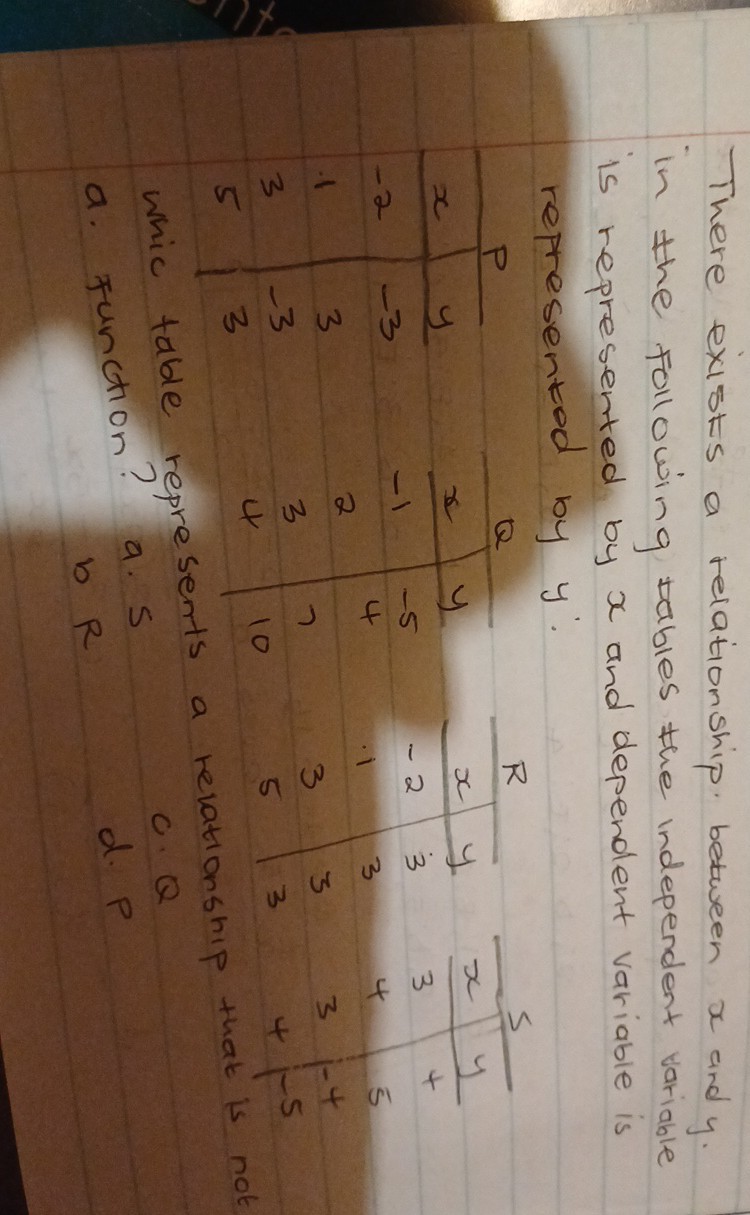 There exists a relationship between x and y.
in the following tables the independent variable
is represented by x and dependent variable is
represented by y.
P Q R S
x y x y x y x y
-2 -3 -1 -5 -2 3 3 4
1 3 2 4 1 3 4 5
3 -3 3 7 3 3 3 -4
5 3 4 10 5 3 4 -5
whic table represents a relationship that is not
a. function? a. S c. Q
b R d. P